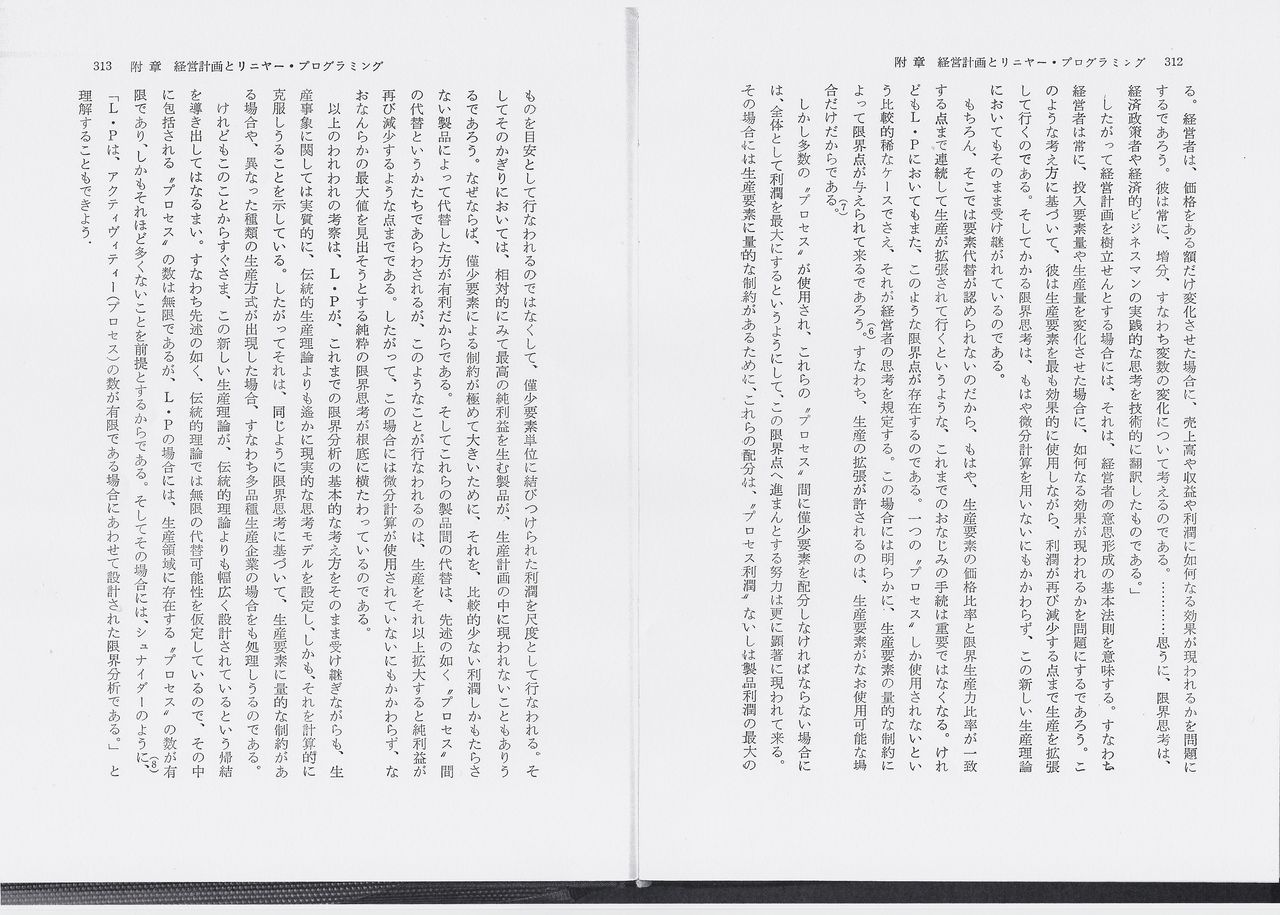 附 章　経営計画とリニヤー・プログラミング　312
る。経営者は、価格をある額だけ変化させた場合に、売上高や収益や利潤に如何なる効果が現われるかを問題に
するであろう。彼は常に、増分、すなわち変数の変化について考えるのである。…………思うに、限界思考は、
経済政策者や経済的ビジネスマンの実践的な思考を技術的に翻訳したものである。」
したがって経営計画を樹立せんとする場合には、それは、経営者の意思形成の基本法則を意味する。すなわち
経営者は常に、投入要素量や生産量を変化させた場合に、如何なる効果が現われるかを問題にするであろう。こ
のような考え方に基づいて、彼は生産要素を最も効果的に使用しながら、利潤が再び減少する点まで生産を拡張
して行くのである。そしてかかる限界思考は、もはや微分計算を用いないにもかかわらず、この新しい生産理論
においてもそのまま受け継がれているのである。
もちろん、そこでは要素代替が認められないのだから、もはや、生産要素の価格比率と限界生産力比率が一致
する点まで連続して生産が拡張されて行くというような、これまでのおなじみの手続は重要ではなくなる。けれ
どもL・Pにおいてもまた、このような限界点が存在するのである。一つの〝プロセス〟しか使用されないとい
う比較的稀なケースでさえ、それが経営者の思考を規定する。この場合には明らかに、生産要素の量的な制約に
よって限界点が与えられて来るであろう。(6)すなわち、生産の拡張が許されるのは、生産要素がなお使用可能な場
合だけだからである。(7)
しかし多数の〝プロセス〟が使用され、これらの〝プロセス〟間に僅少要素を配分しなければならない場合に
は、全体として利潤を最大にするというようにして、この限界点へ進まんとする努力は更に顕著に現われて来る。
その場合には生産要素に量的な制約があるために、これらの配分は、〝プロセス利潤〟ないしは製品利潤の最大の
313　附 章　経営計画とリニヤー・プログラミング
ものを目安として行なわれるのではなくして、僅少要素単位に結びつけられた利潤を尺度として行なわれる。そ
してそのかぎりにおいては、相対的にみて最高の純利益を生む製品が、生産計画の中に現われないこともありう
るであろう。なぜならば、僅少要素による制約が極めて大きいために、それを、比較的少ない利潤しかもたらさ
ない製品によって代替した方が有利だからである。そしてこれらの製品間の代替は、先述の如く、〝プロセス〟間
の代替というかたちであらわされるが、このようなことが行なわれるのは、生産をそれ以上拡大すると純利益が
再び減少するような点までである。したがって、この場合には微分計算が使用されていないにもかかわらず、な
おなんらかの最大値を見出そうとする純粋の限界思考が根底に横たわっているのである。
以上のわれわれの考察は、L・Pが、これまでの限界分析の基本的な考え方をそのまま受け継ぎながらも、生
産事象に関しては実質的に、伝統的生産理論よりも遙かに現実的な思考モデルを設定し、しかも、それを計算的に
克服しうることを示している。したがってそれは、同じように限界思考に基づいて、生産要素に量的な制約があ
る場合や、異なった種類の生産方式が出現した場合、すなわち多品種生産企業の場合をも処理しうるのである。
けれどもこのことからすぐさま、この新しい生産理論が、伝統的理論よりも幅広く設計されているという帰結
を導き出してはなるまい。すなわち先述の如く、伝統的理論では無限の代替可能性を仮定しているので、その中
に包括される〝プロセス〟の数は無限であるが、L・Pの場合には、生産領域に存在する〝プロセス〟の数が有
限であり、しかもそれほど多くないことを前提とするからである。そしてその場合には、シュナイダーのように、
「L・Pは、アクティヴィティー(プロセス)の数が有限である場合にあわせて設計された限界分析である。」(8)と
理解することもできよう.